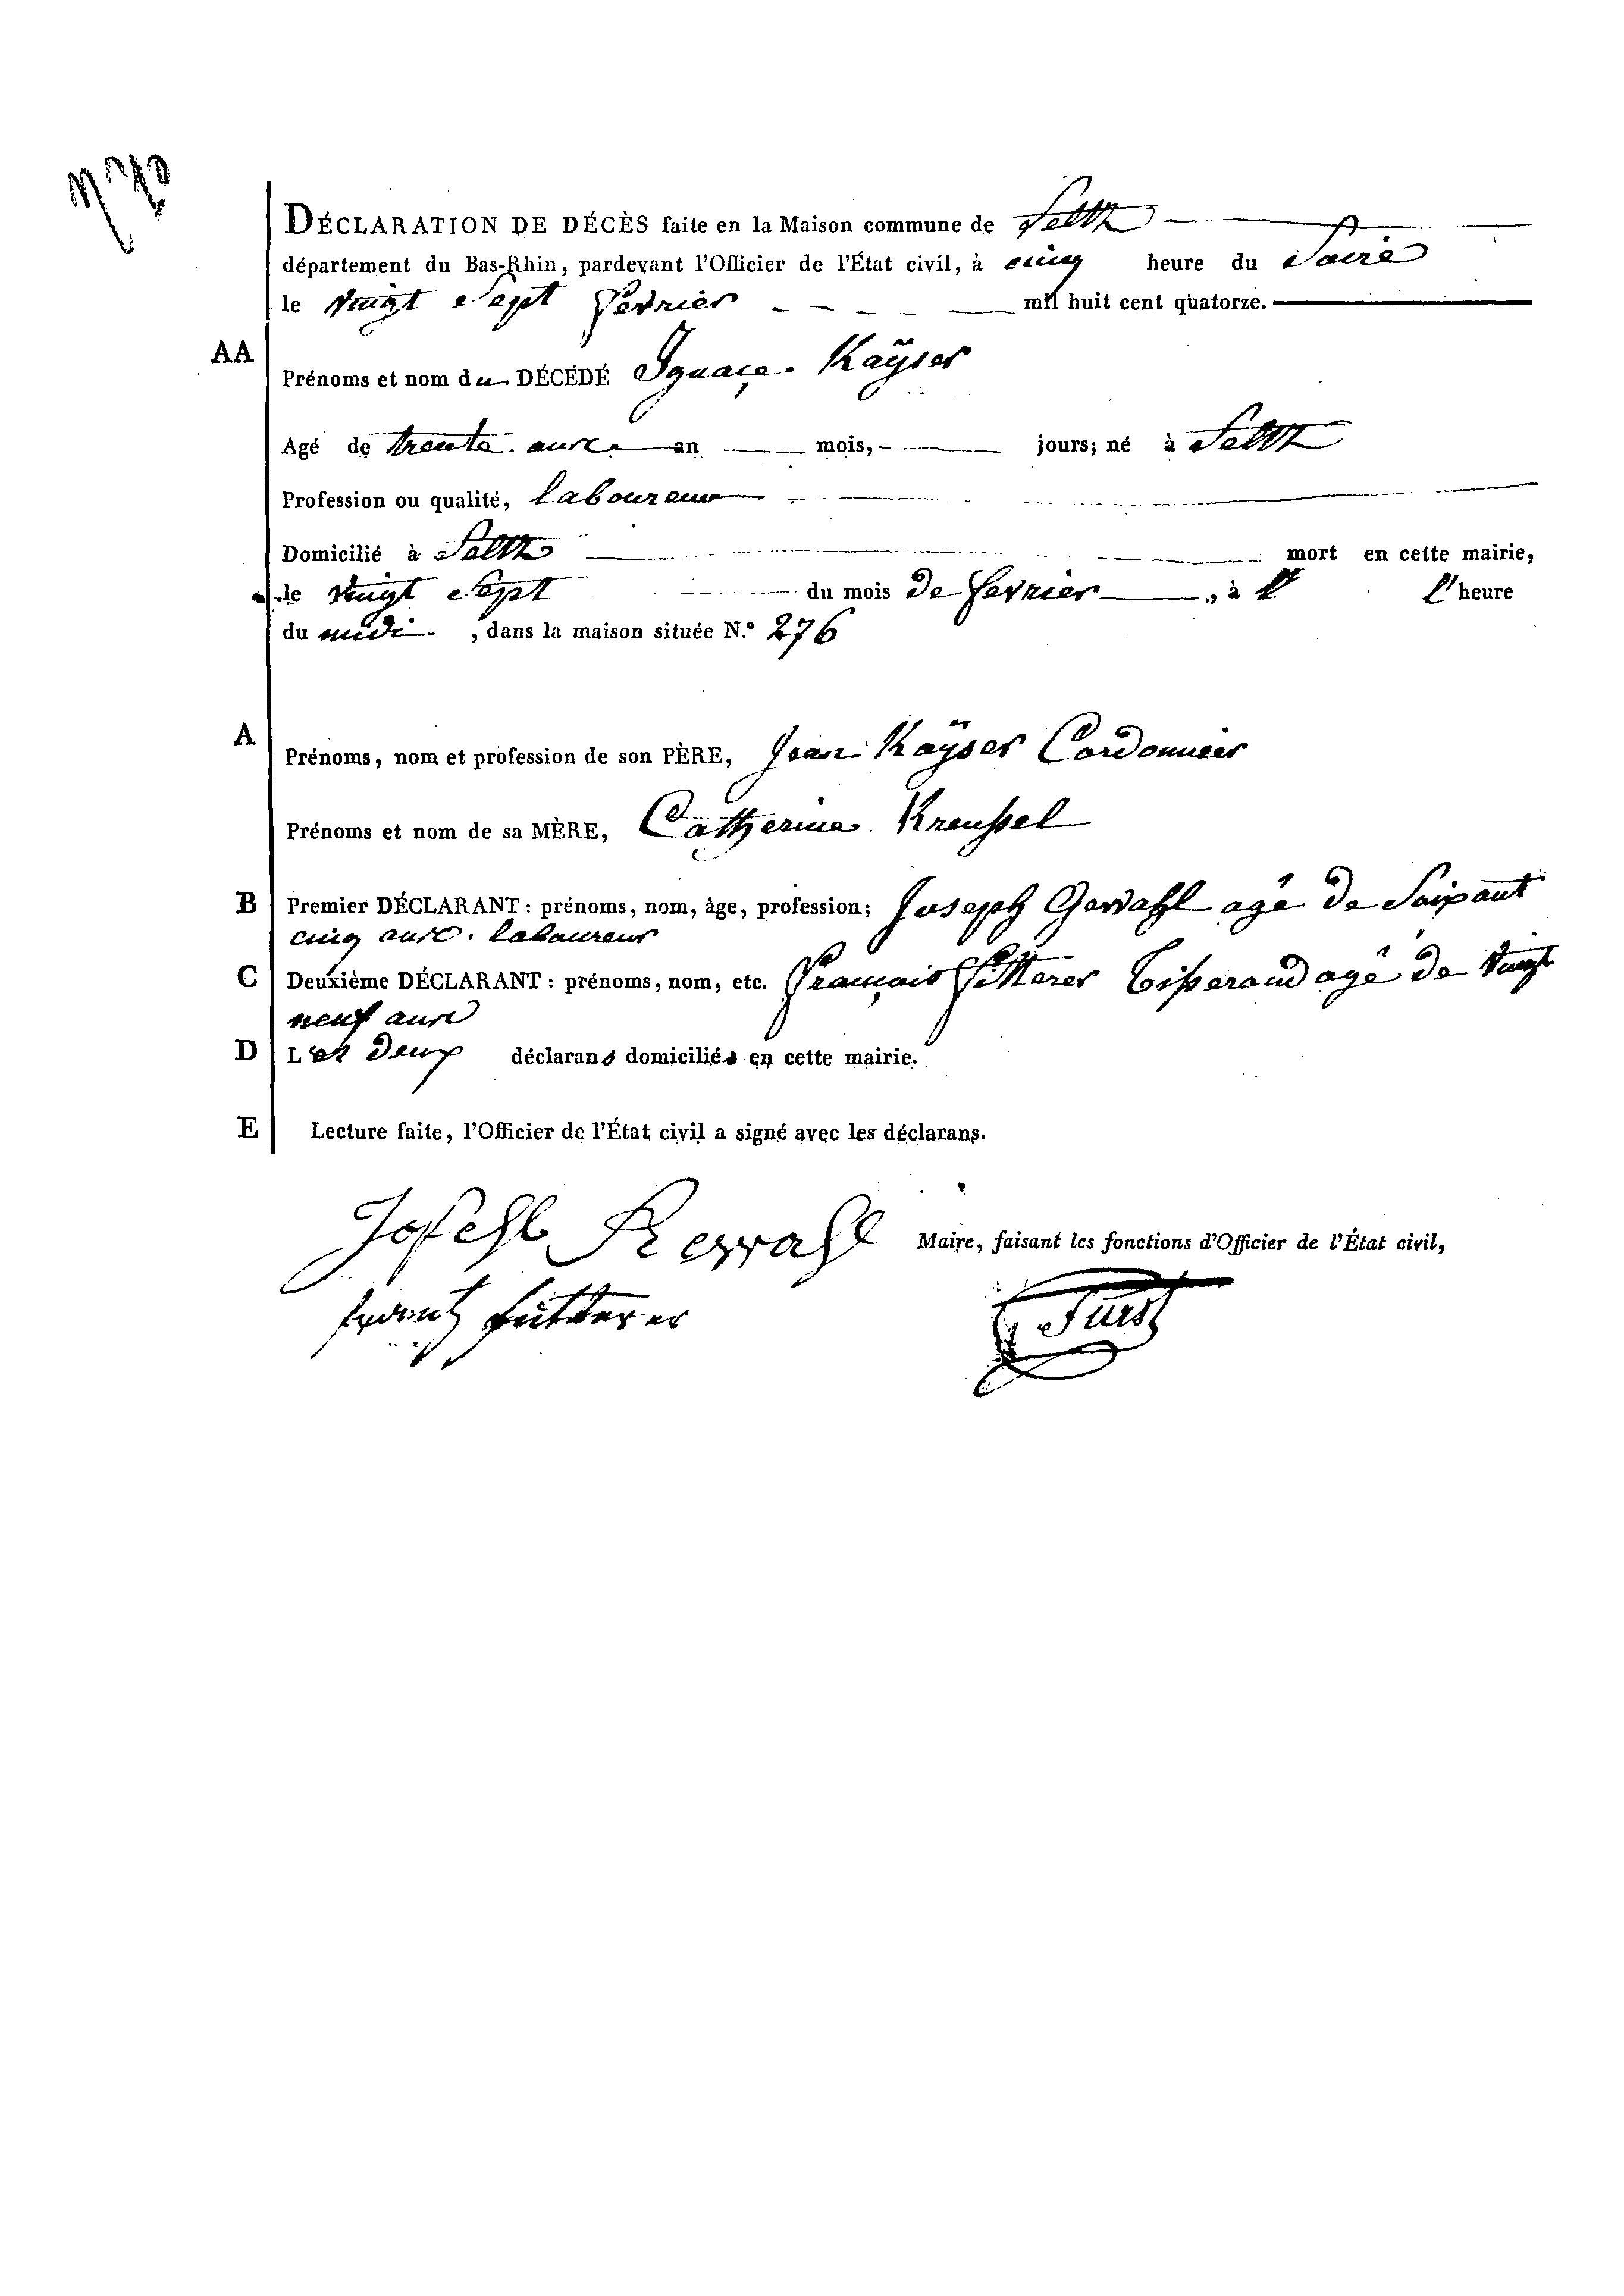 DÉCLARATION DE DÉCÈS faite en la Maison commune de Seltz
département du Bas-Rhin, pardevant l'Officier de l'État civil, à cinq heure du Soire
le vingt Sept fevrier mil huit cent quatorze.
AA
Prénoms et nom du DÉCÉDÉ Ignaçe Kaÿser
Agé de trente ans an mois, jours; né à Seltz
Profession ou qualité, laboureur
Domicilié à Seltz mort en cette mairie,
le vingt Sept du mois de fevrier, à l'heure
du midi, dans la maison située N.º 276
A
Prénoms, nom et profession de son PÈRE, Jean Kaÿser Cordonnier
Prénoms et nom de sa MÈRE, Catherine Kreussel
B Premier DÉCLARANT : prénoms, nom, âge, profession; Joseph Gerwahl agé de Soixant
cinq ans laboureur
C Deuxième DÉCLARANT : prénoms, nom, etc. François Fitterer Tisserand agé de Vingt
neuf ans
D Les deux déclarans domiciliés en cette mairie.
E Lecture faite, l'Officier de l'État civil a signé avec les déclarans.
Maire, faisant les fonctions d'Officier de l'État civil,
frantz fütterer Fürst